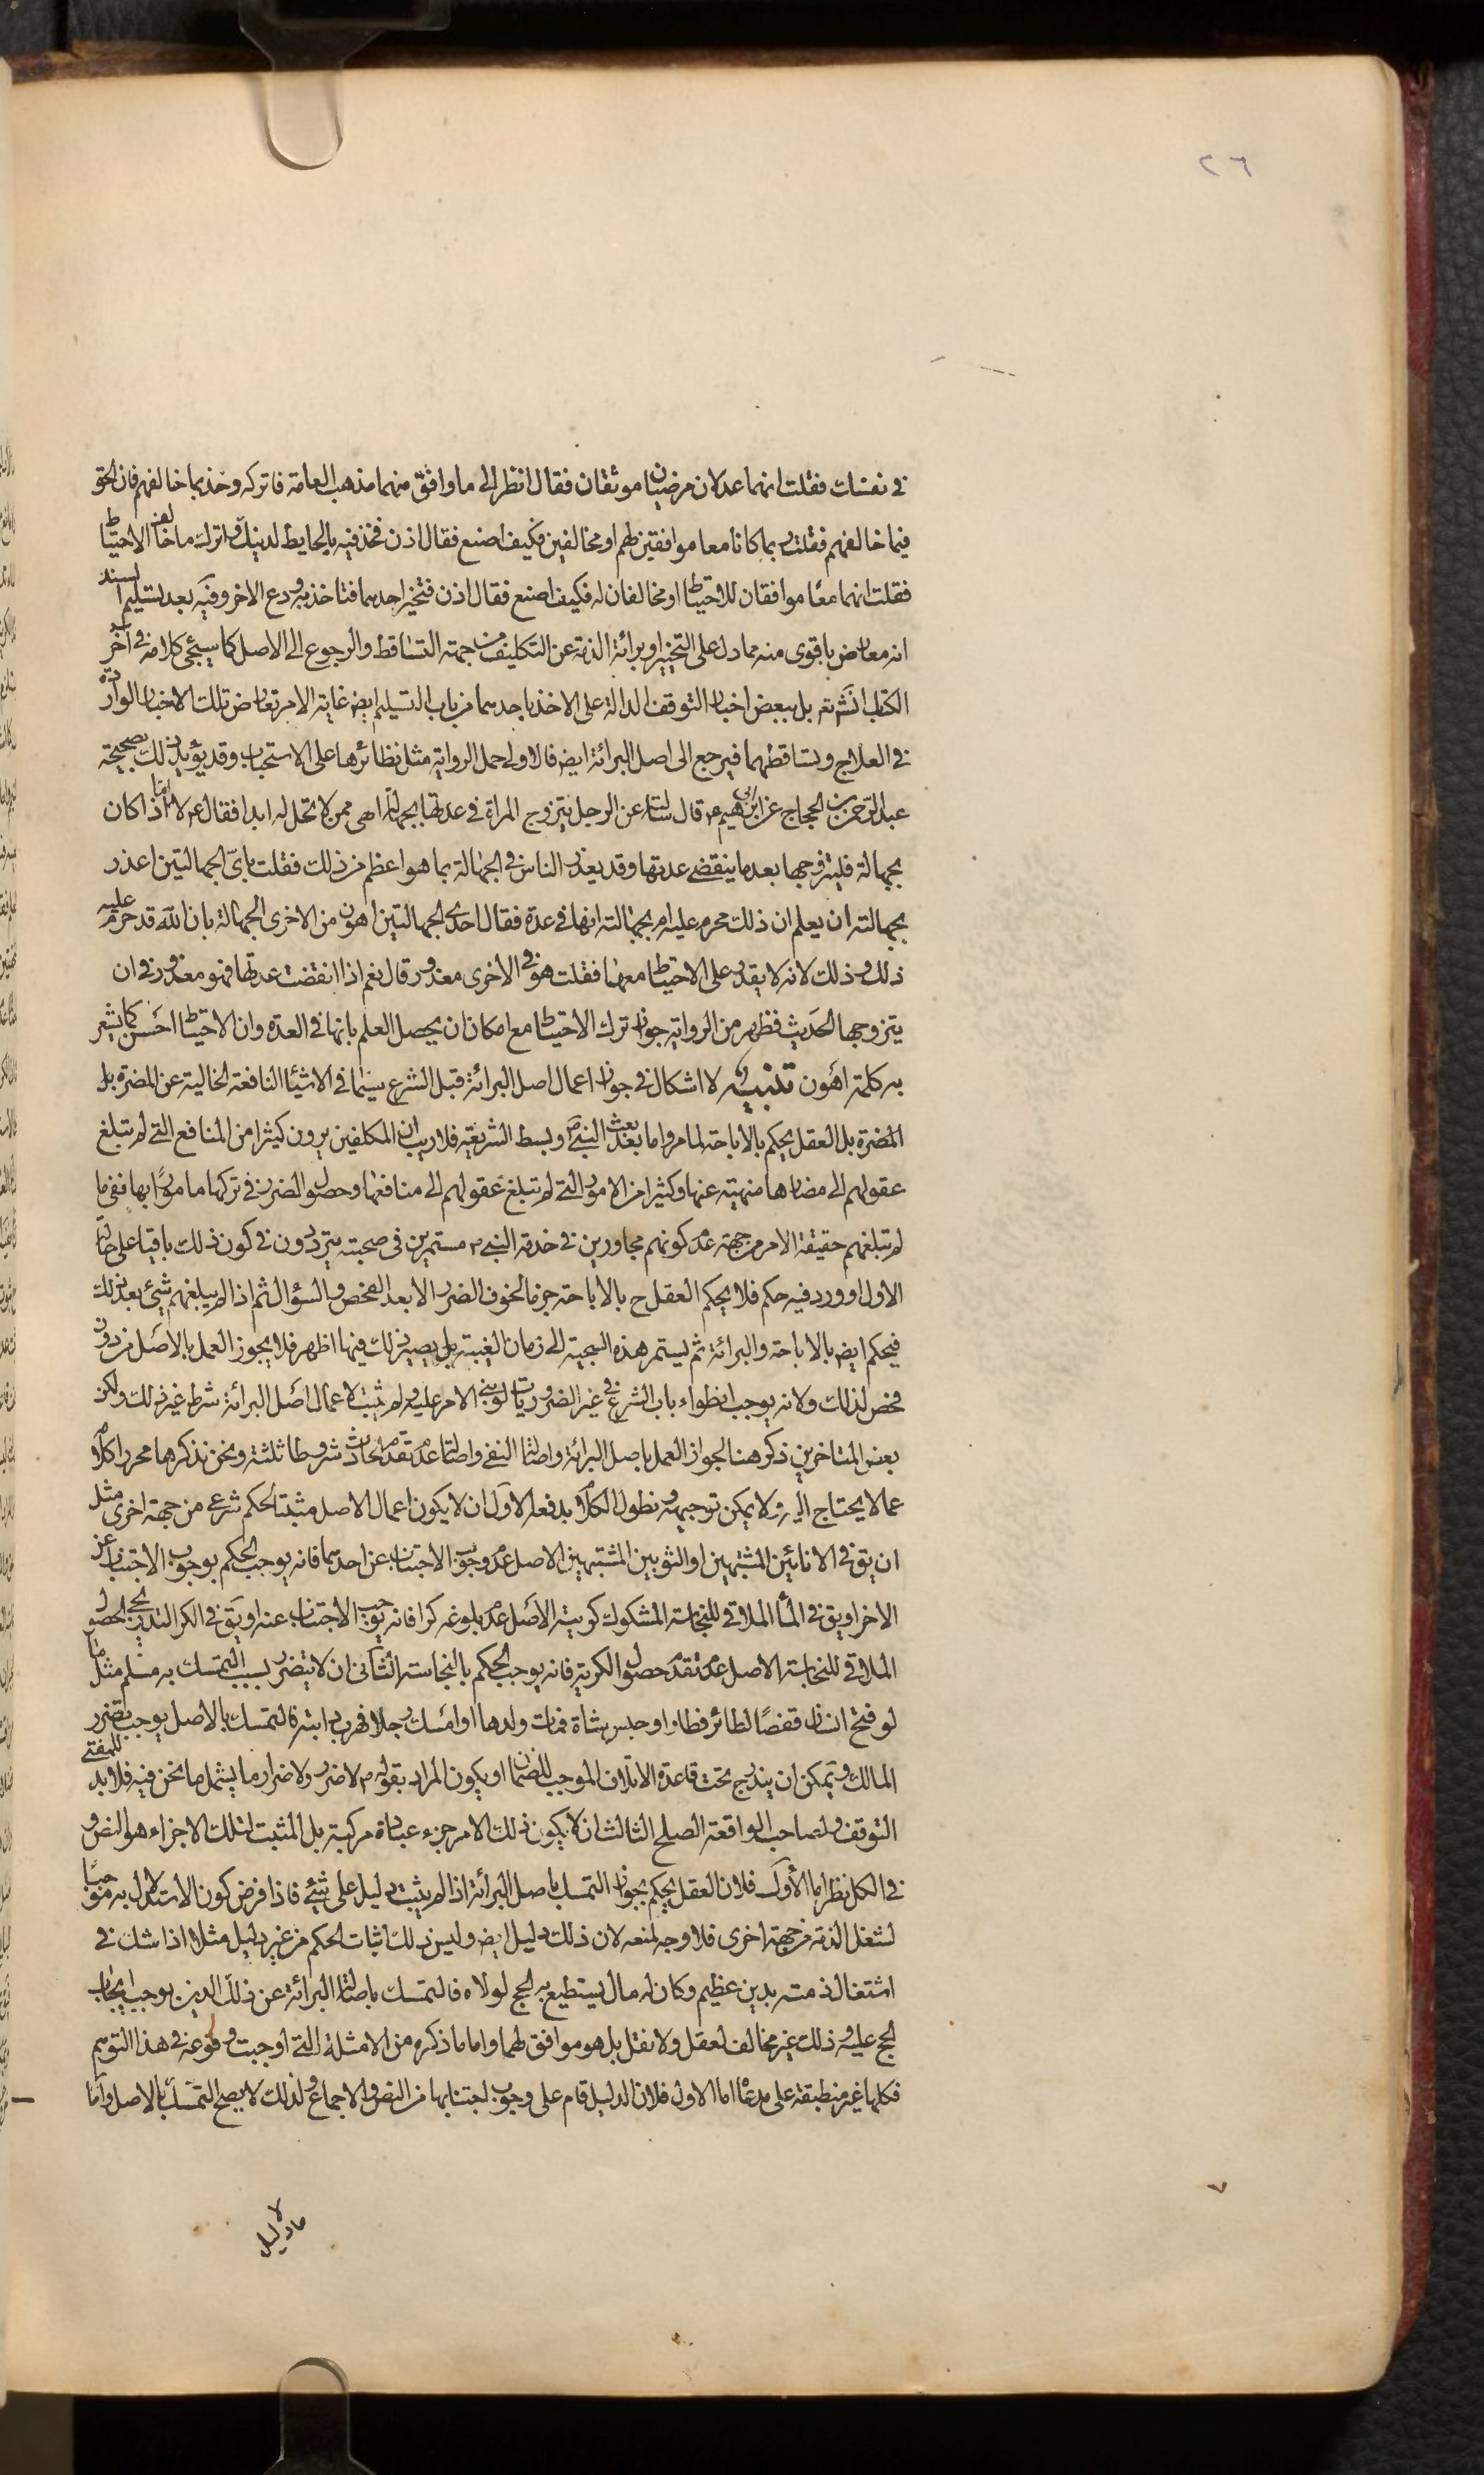 ٢٦
في نفسك فقلت انهما عدلان مرضيان موثقان فقال انظر الى ما وافق منهما مذهب العامة فاتركه وخذ بما خالفهم فان الحق
فيما خالفهم فقلت ربما كانا معا موافقين لهم او مخالفين فكيف اصنع فقال اذن فخذ فيه بالحايطة لدينك واترك ما خالف الاحتياط
فقلت انهما معًا موافقان للاحتياط او مخالفان له فكيف اصنع فقال اذن فتخير احدهما فتاخذ به ودع الاخر وفيه بعد تسليم السند
انه معارض باقوى منه مما دل على التخيير او برائة الذمة عن التكليف من جهة التساقط والرجوع الى الاصل كما سيجئ كلامه في آخر
الكتاب انش تعه بل ببعض اخبار التوقف الدالة على الاخذ باحدهما من باب التسليم ايض غاية الامر تعارض تلك الاخبار الواردة
في العلاج وتساقطهما فيرجع الى اصل البرائة ايض فالاولى حمل الرواية مثل نظائرها على الاستحباب وقد يؤيد ذلك بصحيحة
عبد الرحمن بن الحجاج عن ابي ابرهيم ع قال سئلته عن الرجل يتزوج المراة في عدتها بجهالة اهي ممن لا تحل له ابدا فقال ع لا اما اذا كان
بجهالة فليتزوجها بعد ما ينقضي عدتها وقد يعذر الناس في الجهالة بما هو اعظم من ذلك فقلت باي الجهالتين اعذر
بجهالته ان يعلم ان ذلك محرم عليه ام بجهالته انها في عدة فقال احدى الجهالتين اهون من الاخرى الجهالة بان الله قد حرم عليه
ذلك وذلك لانه لا يقدر على الاحتياط معها فقلت هو في الاخرى معذور قال نعم اذا انقضت عدتها فهو معذور في ان
يتزوجها الحديث فظهر من الرواية جواز ترك الاحتياط مع امكان ان يحصل العلم بانها في العدة وان الاحتياط احسن كما يشعر
به كلمة اهون تنبيه لا اشكال في جواز اعمال اصل البرائة قبل الشرع سيما في الاشيا النافعة الخالية عن المضرة بل
المضرة بل العقل يحكم بالاباحة لما مر واما بعد بعث النبي ص وبسط الشريعة فلا ريب ان المكلفين يرون كثيرا من المنافع التي لم تبلغ
عقولهم الى مضارها منهية عنها وكثيرا من الامور التي لم تبلغ عقولهم الى منافعها وحصول الضرر في تركها مامورًا بها ففي ما
لم تبلغهم حقيقة الامر من جهة عدم كونهم مجاورين في خدمة النبي ص مستمرين في صحبته يترددون في كون ذلك باقيا على حاله
الاول او ورد فيه حكم فلا يحكم العقل ح بالاباحة جزما لخوف الضرر الا بعد الفحص والسؤال ثم اذا لم يبلغهم شيئ بعد ذلك
فيحكم ايض بالاباحة والبرائة ثم يستمر هذه السجية الى زمان الغيبة بل يصير ذلك فيها اظهر فلا يجوز العمل بالاصل من دون
فحص لذلك ولانه يوجب انطواء باب الشرع في غير الضروريات لو بني الامر عليه ولم يثبت لاعمال اصل البرائة شرط غير ذلك ولكن
بعض المتاخرين ذكر هنا لجواز العمل باصل البرائة واصالة النفي واصالة عدم تقدم الحادث شروطا ثلثة ونحن نذكرها محررا كلامه
عما لا يحتاج اليه ولا يمكن توجيهه ونطول الكلام بدفعه الاول ان لا يكون اعمال الاصل مثبتا لحكم شرعي من جهة اخرى مثل
ان يق في الانائين المشتبهين او الثوبين المشتبهين الاصل عدم وجوب الاجتناب عن احدهما فانه يوجب الحكم بوجوب الاجتناب عن
الاخر او يق في الماء الملاقي للنجاسة المشكوك كريته الاصل عدم بلوغه كرا فانه يوجب الاجتناب عنه او يق في الكر التدريجي الحصول
الملاقي للنجاسة الاصل عدم تقدم حصول الكرية فانه يوجب الحكم بالنجاسة الثاني ان لا يتضرر بسبب التمسك به مسلم مثل ما
لو فتح انسان قفصًا لطائر فطار او حبس شاة فمات ولدها او امسك رجلا فهرب دابته فالتمسك بالاصل يوجب تضرر
المالك ويمكن ان يندرج تحت قاعدة الاتلاف الموجب للضمان او يكون المراد بقوله ع لا ضرر ولا ضرار ما يشمل ما نحن فيه فلا بد للمفتي
التوقف ولصاحب الواقعة الصلح الثالث ان لا يكون ذلك الامر جزء عبادة مركبة بل المثبت لتلك الاجزاء هو النص و
في الكل نظر اما الأول فلان العقل يحكم بجواز التمسك باصل البرائة اذا لم يثبت دليل على شيئ فاذا فرض كون الاستدلال به موجبًا
لشغل الذمة من جهة اخرى فلا وجه لمنعه لان ذلك دليل ايض وليس ذلك اثبات لحكم من غير دليل مثلا اذا شك في
اشتغال ذمته بدين عظيم وكان له مال يستطيع به الحج لولاه فالتمسك باصالة البرائة عن ذلك الدين يوجب ايجاب
الحج عليه وذلك غير مخالف لعقل ولا نقل بل هو موافق لهما واما ما ذكره من الامثلة التي اوجبت وقوعه في هذا التوهم
فكلها غير منطبقة على مدعاه اما الاول فلان الدليل قام على وجوب اجتنابها من النص والاجماع ولذلك لا يصح التمسك بالاصل واما